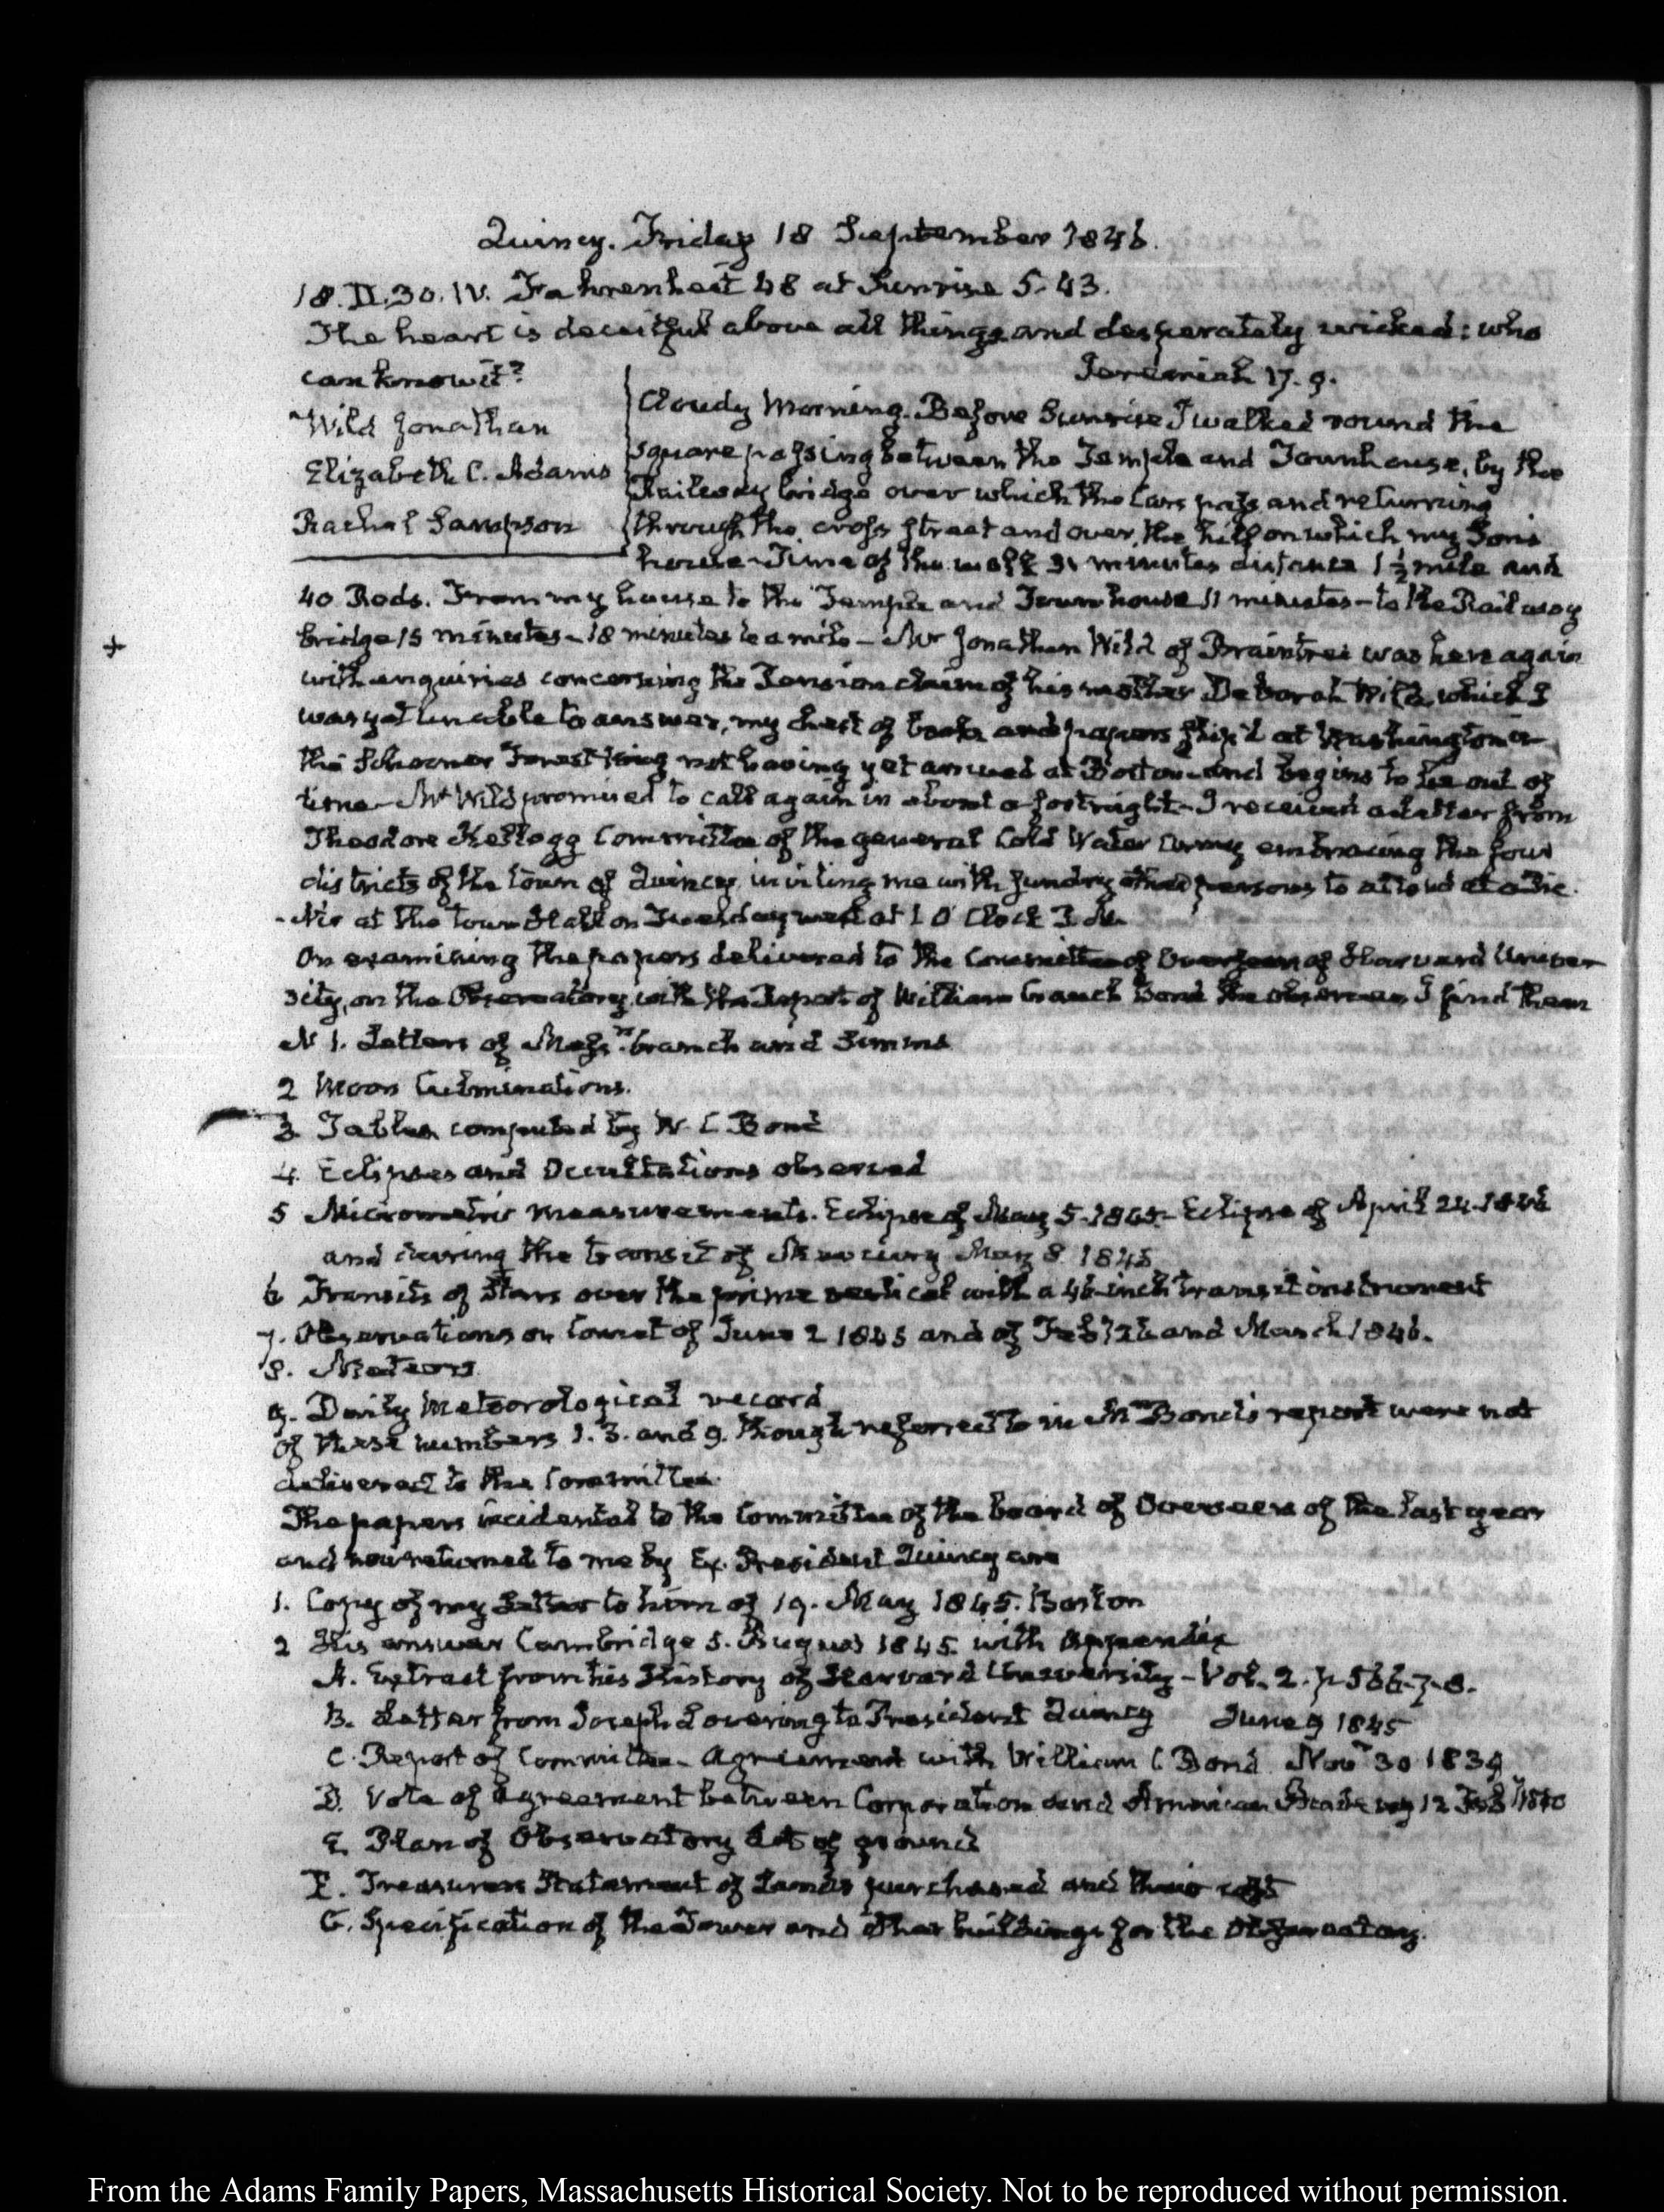 Quincy. Friday 18 September 1846.
18. II.30. IV. Fahrenheit 48 at Sunrise 5.43.
The heart is deceitful above all things and desperately wicked: who
can know it?
Jeremiah 17. 9.
Wild Jonathan
Elizabeth C. Adams
Rachel Sampson
Cloudy Morning. Before Sunrise I walked round the
square passing between the Temple and Townhouse, by the
Railway bridge over which the Cars pass and returning
through the cross street and over the hill on which my Sons
house - Time of the walk 31 minutes distance 1 1/2 mile and
40 Rods. From my house to the Temple and Town house 11 minutes - to the Railway
bridge 15 minutes - 18 minutes to a mile - Mr Jonathan Wild of Braintree was here again
with enquiries concerning the Pension claim of his mother Deborah Wild, which I
was yet unable to answer, my chest of books and papers ship'd at Washington in
the Schooner Forest King not having yet arrived at Boston - and begins to be out of
time - Mr Wild promised to call again in about a fortnight - I received a letter from
Theodore Kellogg Committee of the general Cold Water Army embracing the four
districts of the town of Quincy, inviting me with sundry other persons to attend at a Pic
-Nic at the Town Hall on Tuesday next at 1 O'Clock P.M.
On examining the papers delivered to the Committee of Overseers of Harvard Univer
sity, on the Observatory, with the Report of William Cranch Bond the observer, I find them
N 1. Letters of Messrs. and Simms
2 Moon Culminations.
3 Tables computed by W. C Bond
4. Eclipses and Occultations observed
5 Micrometric measurements. Eclipse of May 5. 1845 - Eclipse of April 24. 1846
and during the transit of Mercury May 8 1845
6 Transits of Stars over the prime vertical with a 46-inch transit instrument
7. Observations on Comet of June 2 1845 and of Feb 26 and March 1846.
8. Meteors
9. Daily Meteorological record
of these numbers 1. 3. and 9. though referred to in Mr Bond's report were not
delivered to the Committee.
The papers incidental to the Committee of the board of Overseers of the last year
and now returned to me by Ex. President Quincy are
1. Copy of my Letter to him of 19. May 1845. Boston
2 His answer Cambridge 5. August 1845. with Appendix
A. Extract from his History of Harvard University - Vol. 2. p 566-7-8.
B. Letter from Joseph Lovering to President Quincy June 9 1845
C. Report of Committee - Agreement with William C Bond. Novr 30 1839
D. Vote of Agreement between Corporation and American Academy 12 Feby 1840
E. Plan of Observatory Lot of ground
F. Treasurers Statement of Lands purchased and their cost
G. Specification of the Tower and other buildings for the Observatory.
From the Adams Family Papers, Massachusetts Historical Society. Not to be reproduced without permission.